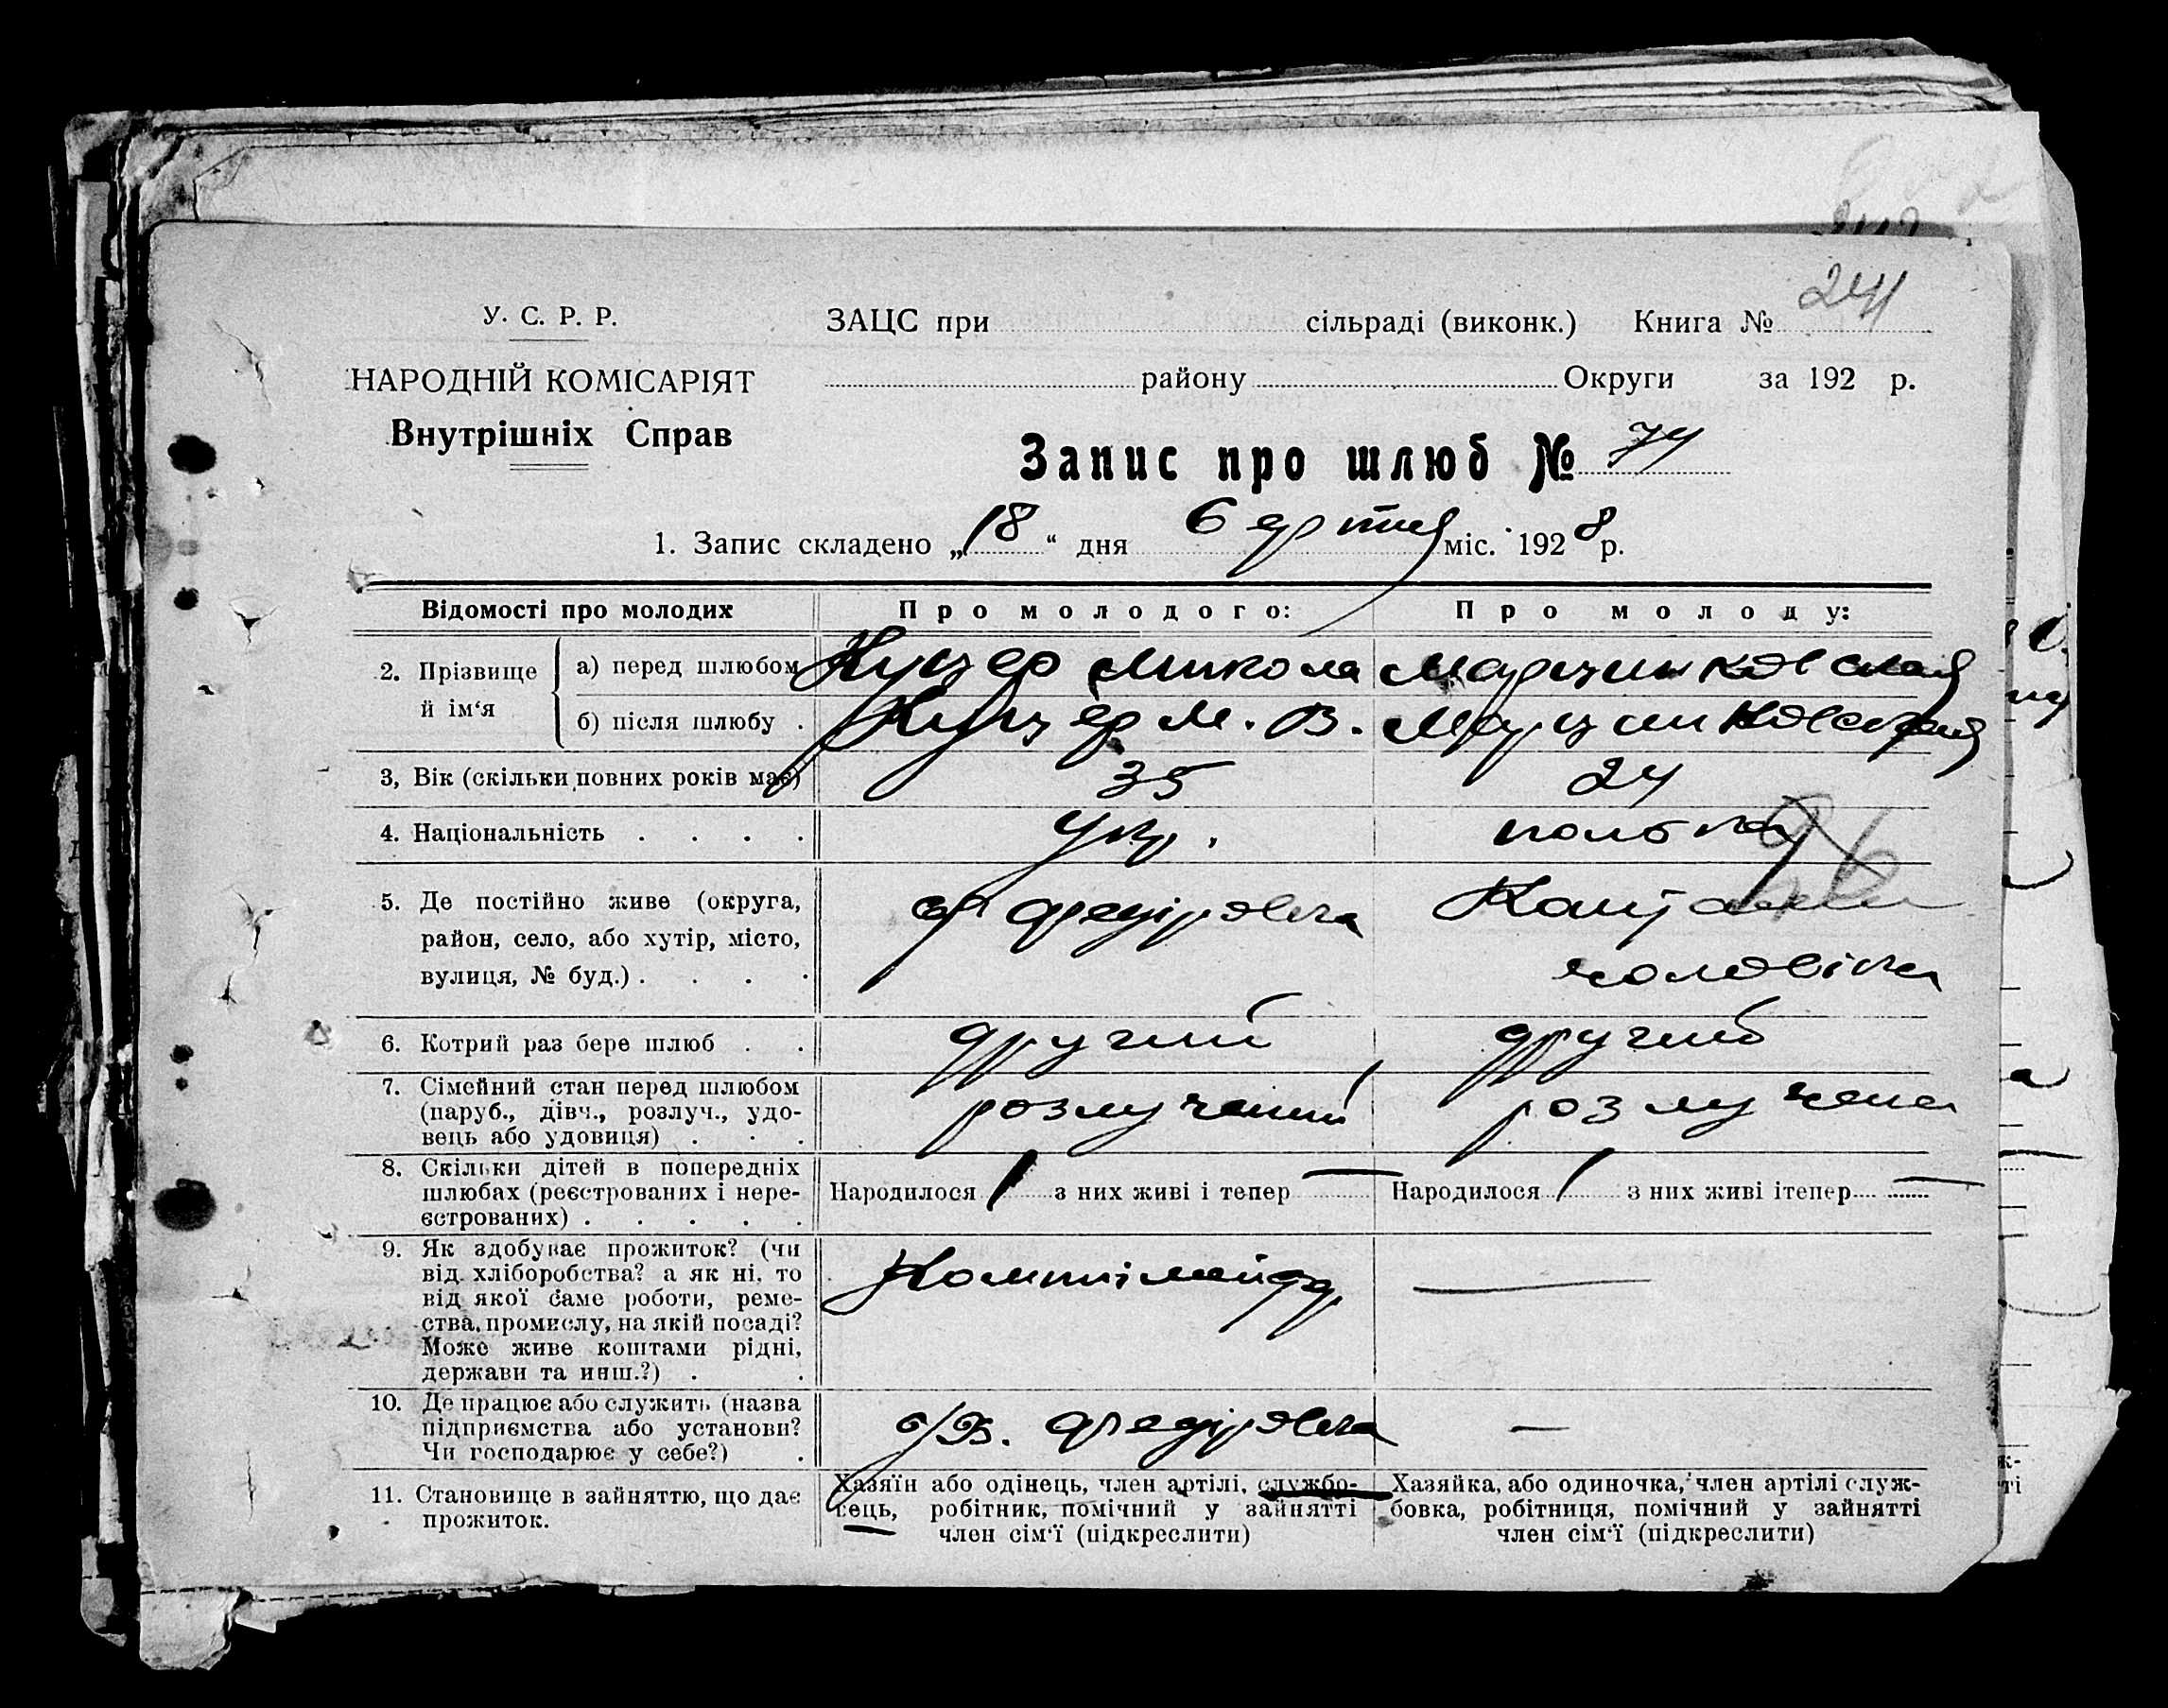 241
У. С. Р. Р.
НАРОДНІЙ КОМІСАРІЯТ
Внутрішніх Справ
ЗАЦС при сільраді (виконк.) Книга №
району Округи за 192 р.
Запис про шлюб № 74
1. Запис складено „18“ дня серпня міс. 1928 р.
Відомості про молодих Про молодого: Про молоду:
2. Прізвище й ім‘я
а) перед шлюбом Куцер Микола Марцинковская
б) після шлюбу . Куцер М. В. Марцинковская
3, Вік (скільки повних років має) 35 24
4. Національність . . . . Укр. полька
96
5. Де постійно живе (округа,
район, село, або хутір, місто,
вулиця, № буд.) . . . .
с. Федірівка
чоловіка
6. Котрий раз бере шлюб . . другий другий
7. Сімейний стан перед шлюбом
(паруб., дівч., розлуч., удо-
вець або удовиця) . . .
розлучений розлучена
8. Скільки дітей в попередніх
шлюбах (реєстрованих і нере-
єстрованих) . . . . .
Народилося 1 з них живі і тепер —
Народилося 1 з них живі ітепер —
9. Як здобуває прожиток? (чи
від хліборобства? а як ні, то
від якої саме роботи, реме-
ства, промислу, на якій посаді?
Може живе коштами рідні,
держави та инш.?) . .
—
10. Де працює або служить (назва
підприємства або установи?
Чи господарює у себе?) .
Федірівка —
11. Становище в зайняттю, що дає
прожиток.
Хазяїн або одінець, член артілі, службо-
вець, робітник, помічний у зайнятті
член сім‘ї (підкреслити)
Хазяйка, або одиночка, член артілі служ-
бовка, робітниця, помічний у зайнятті
член сім‘ї (підкреслити)